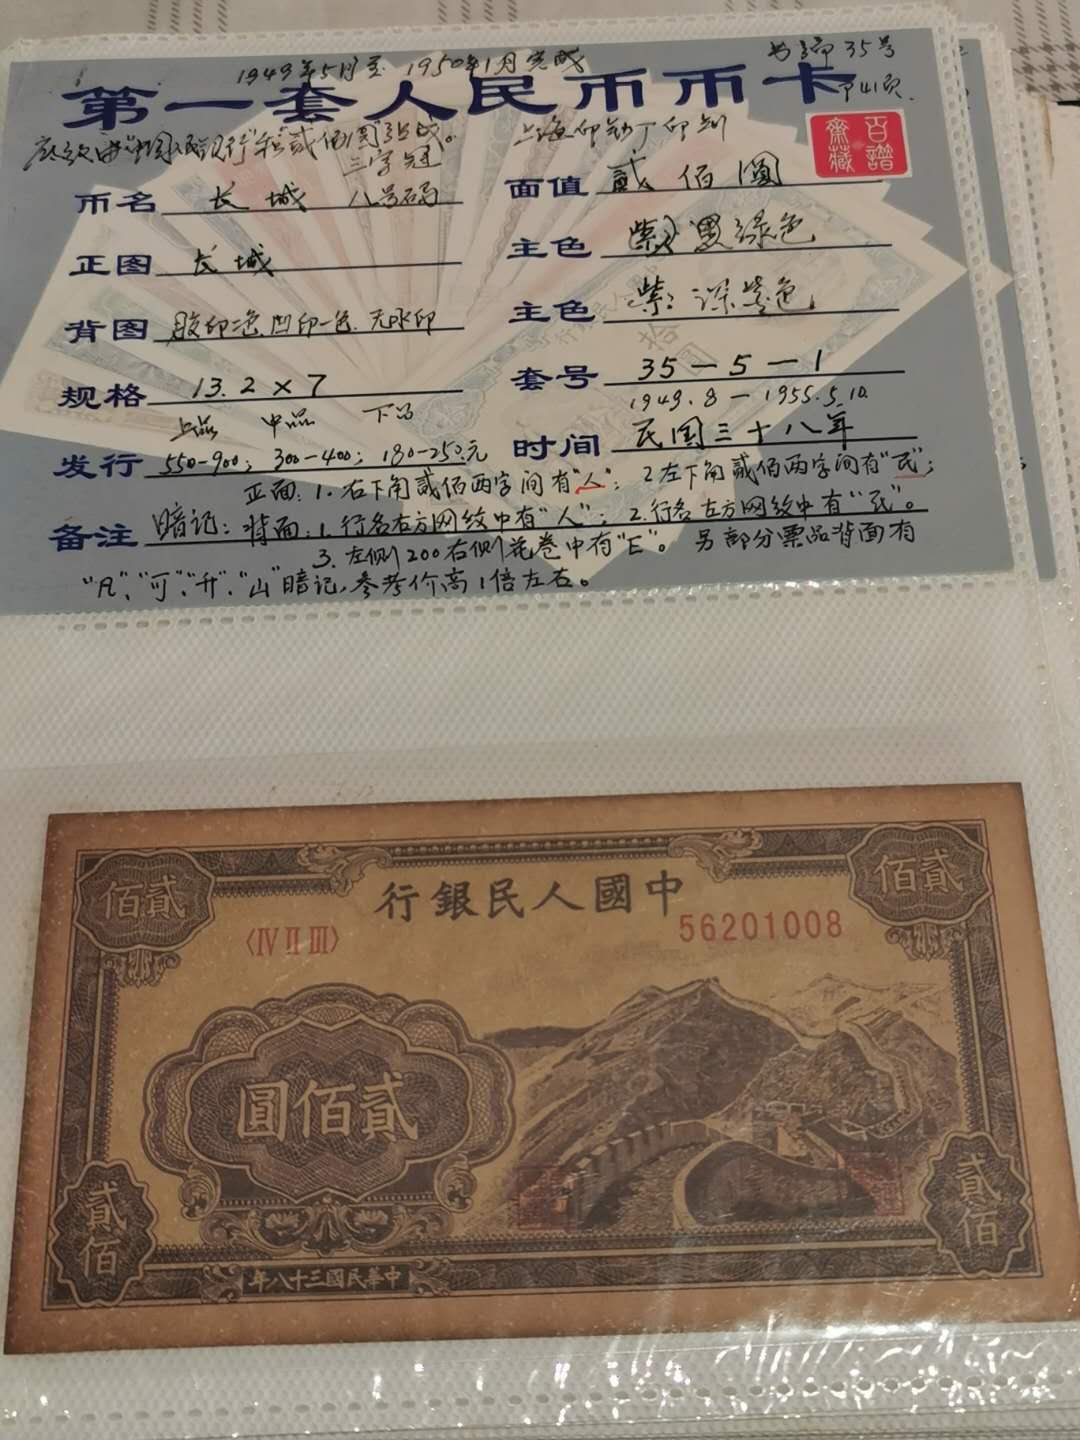 1949年5月至1950年1月完成
书编35号
第一套人民币币卡
第41页.
三字冠
上海印钞厂印制
百譜齋藏
币名 长城 八号码
面值 貳佰圓
正图 长城
主色 紫、黑绿色
背图 胶印二色.凹印一色.无水印
主色 紫:深紫色
规格 13.2×7
套号 35-5-1
上品 中品 下品
1949.8-1955.5.10.
发行 550-900; 300-400; 180-250元
时间 民国三十八年
正面:1.右下角貳佰两字间有"人"; 2左下角貳佰两字间有"民";
备注 暗记:背面:1.行名右方网纹中有"人"; 2.行名左方网纹中有"民"。
3.左侧200右侧花卷中有"E"。另部分票品背面有
"凡"、"可"、"升"、"山"暗记,参考价高1倍左右。
佰貳
行銀民人國中
佰貳
〈IV II III〉
56201008
圓佰貳
貳佰
貳佰
年八十三國民華中